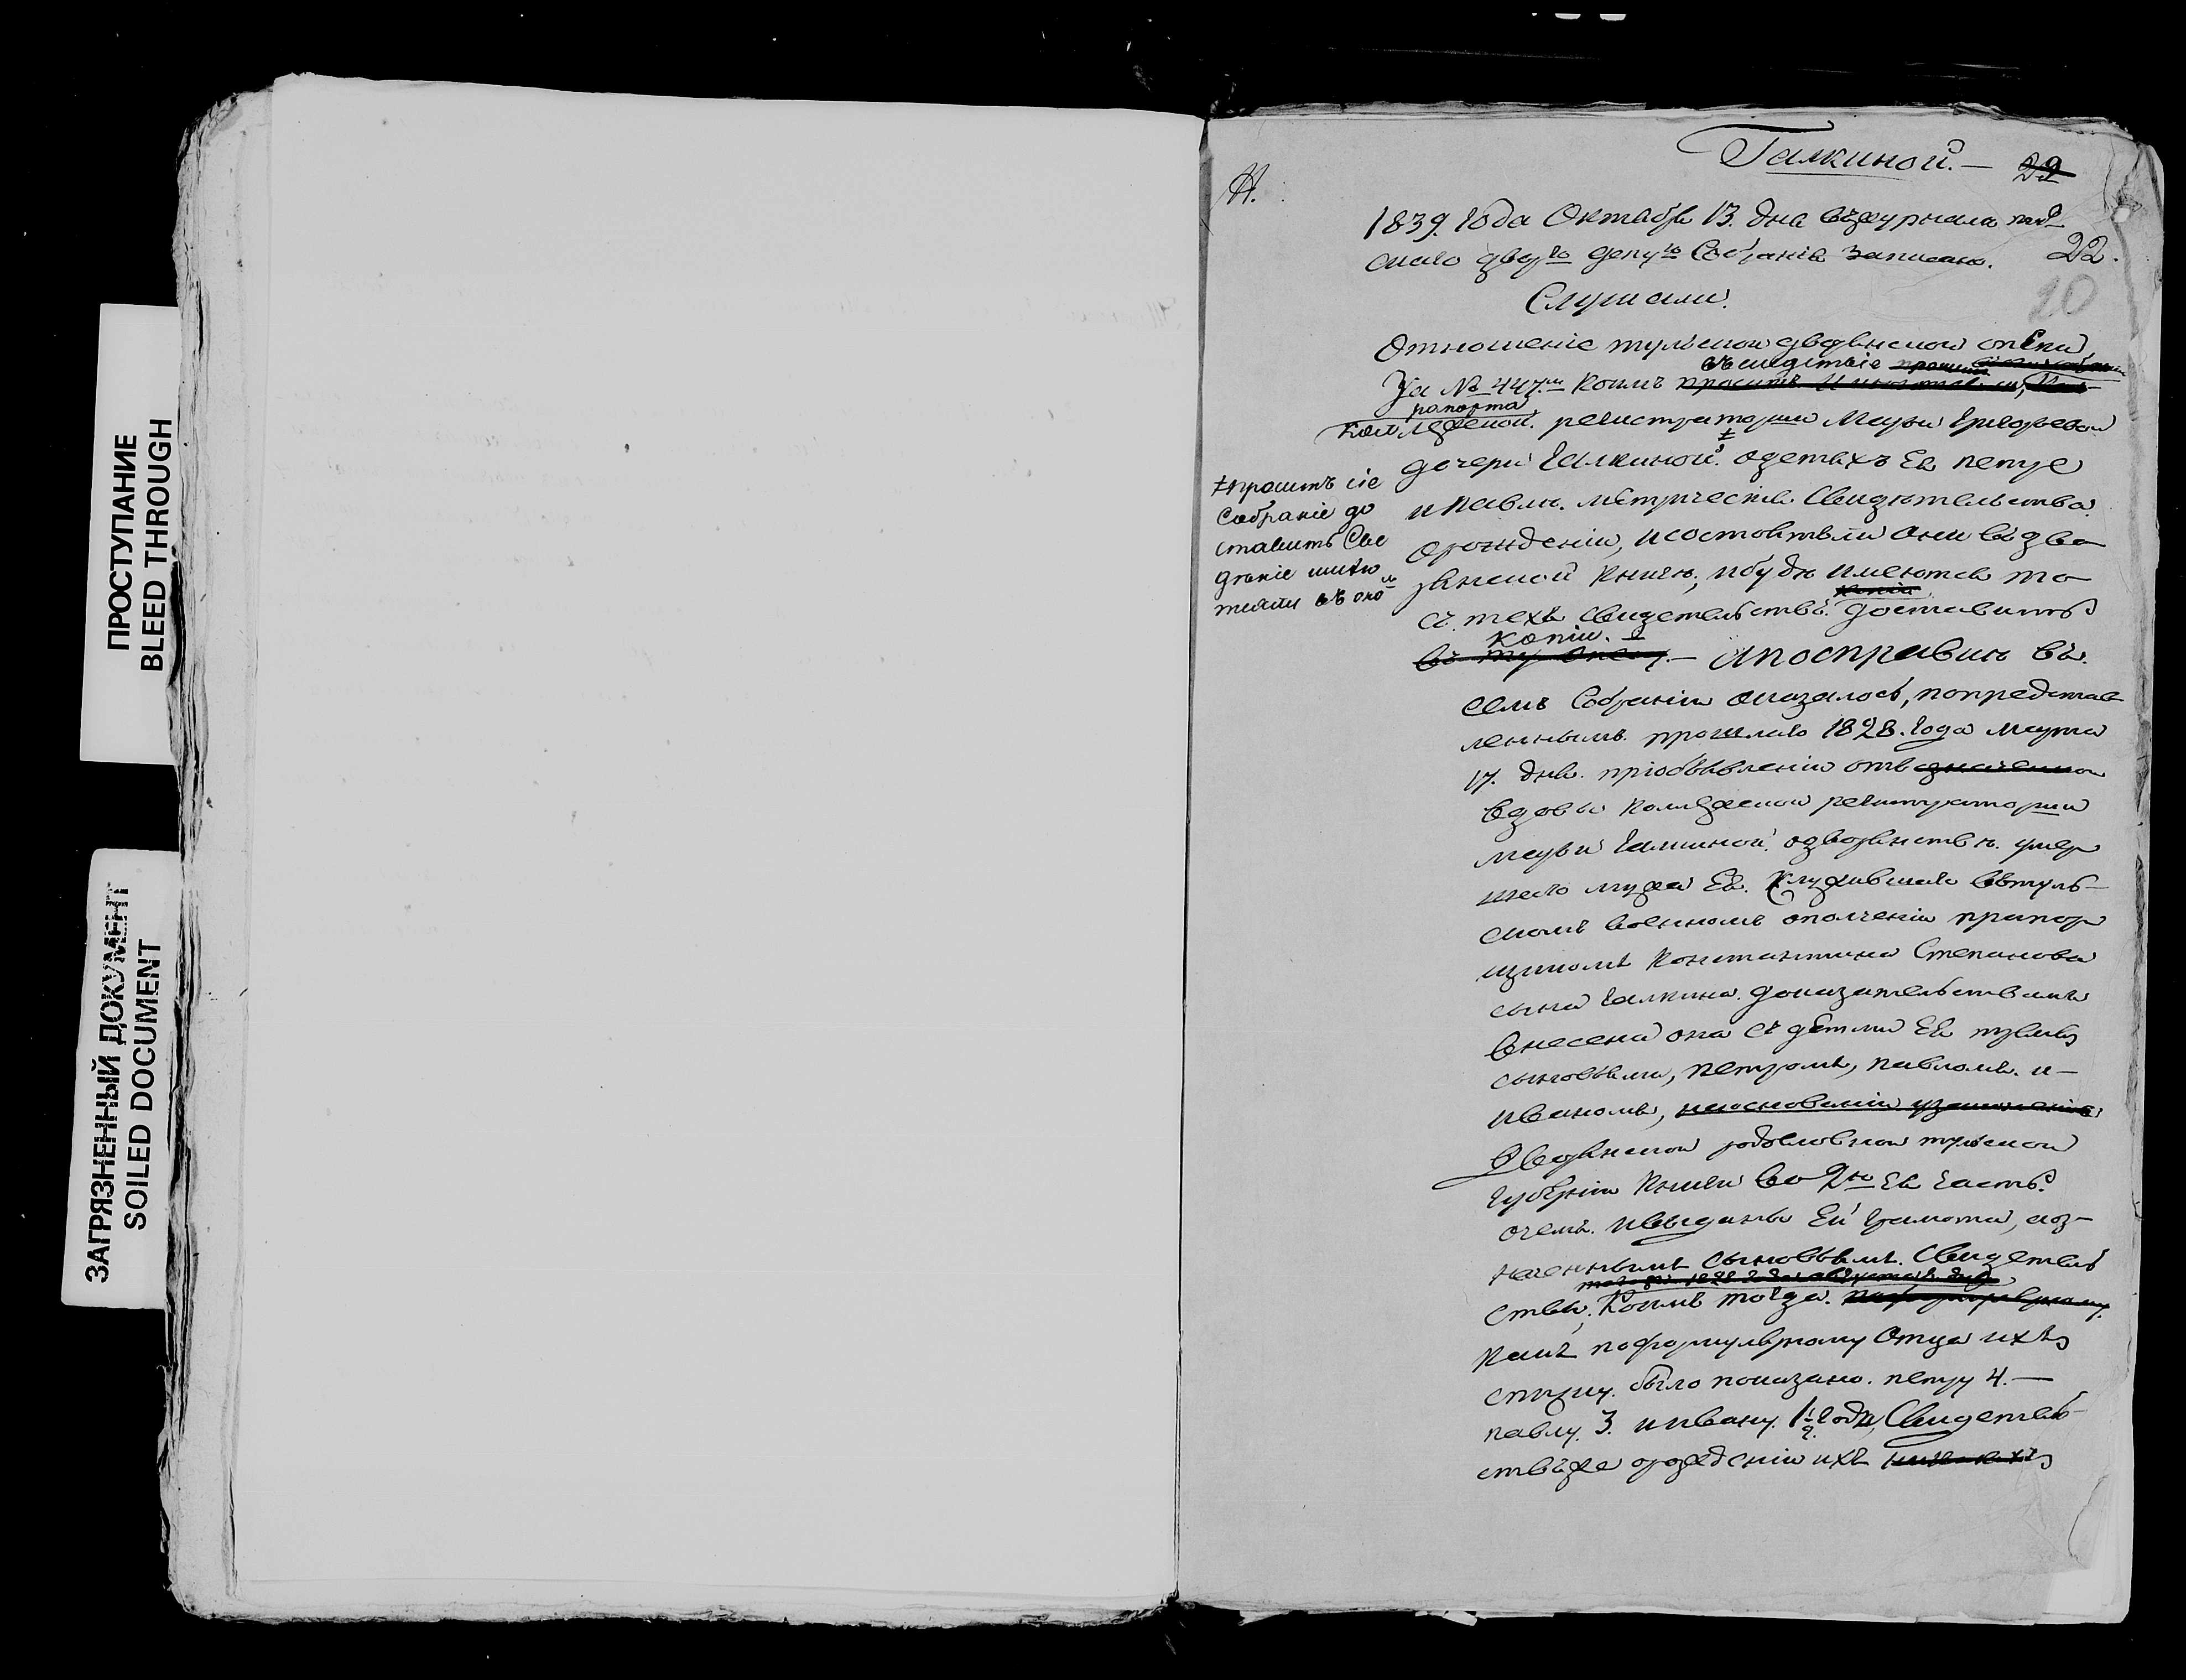 ПРОСТУПАНИЕ
BLEED THROUGH
ЗАГРЯЗНЕННЫЙ ДОКУМЕНТ
SOILED DOCUMENT
Галкиной. — 22
1839. года Октября 13. дня въ журнале туль
скаго двор го депу го Собранія записано. 22.
20
Слушали.
Отношеніе тульской дворянской опеки
въ следствіе
За № 447. м коимъ
рапорта
коллежской регистраторши Марьи Григорьевой
дочери Галкиной. о детяхъ Ея петре
и павле. метрическія Свидетельства
о рожденіи, и состоятъ ли они въ дво
рянской книге, и буде имеются то
съ техъ свидетельствъ. доставить
копіи. —
— И по справке въ
семъ Собраніи оказалось, по представ
леннымъ прошлаго 1828. года марта
17. дня. при объявленіи отъ
вдовы коллежской регистраторши
марьи Галкиной. о дворянстве. умер
шаго мужа Ея. Служившаго въ туль-
скомъ военномъ ополченіи прапор
щикомъ Константина Степанова
сына Галкина. доказательствамъ
внесена она съ детьми Ея
сыновьями, петромъ, павломъ. и —
иваномъ, на основаніи
Дворянской родословной тульской
Губерніи книги во 2 ю Ея часть.
о чемъ. и выданы Ей грамота, а оз-
наченнымъ сыновьямъ. Свидетель
ствы, Коимъ тогда.
какъ по формулярному Отца ихъ
списку. было показано. петру 4. —
павлу. 3. и ивану. 1½ года, Свидетель-
ствъ же о рожденіи ихъ
± просить сіе
Собраніе до
ставить Све
деніе имею